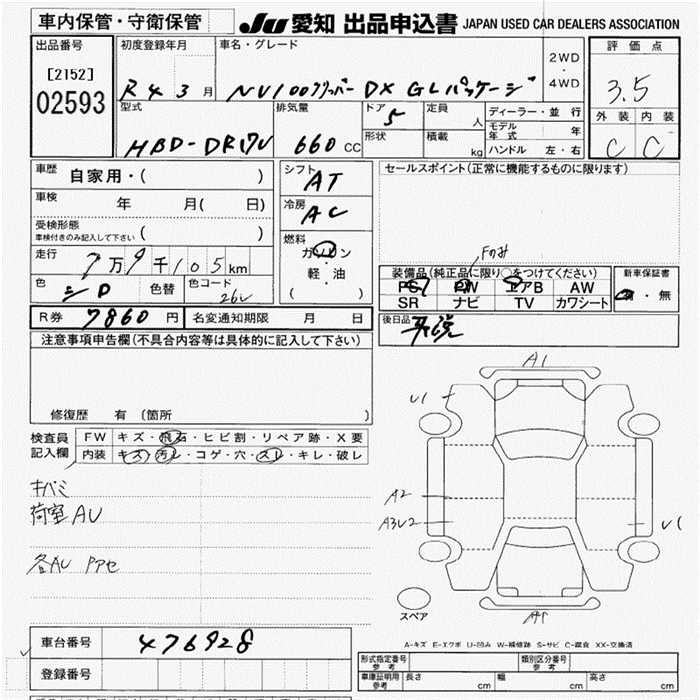 車内保管・守衛保管 JU 愛知 出品申込書 JAPAN USED CAR DEALERS ASSOCIATION
出品番号 初度登録年月 車名・グレード 2WD・4WD 評価点
[2152] R4 3月 NV100クリッパー DX GLパッケージ 3.5
02593 型式 排気量 ドア 5 定員 人 ディーラー・並行 外装 内装
HBD-DR17V 660 CC 形状 積載 kg モデル年式 年 C C
ハンドル 左・右
車歴 自家用・( ) シフト AT セールスポイント(正常に機能するものに限ります)
車検 年 月( 日) 冷房 AC
受検形態
車検付きのみ記入して下さい ( )
燃料 ガソリン・軽・油 ( )
走行 7万9千105km
色 シロ 色替 色コード 26U
Fのみ
装備品(純正品に限り○をつけてください) 新車保証書
PS PW エアB AW 有・無
SR ナビ TV カワシート
R券 7860円 名変通知期限 月 日 後日品 取説
注意事項申告欄(不具合内容等は具体的に記入して下さい)
修復歴 有 (箇所 )
検査員記入欄 FW キズ・飛石・ヒビ割・リペア跡・X要
内装 キズ・汚レ・コゲ・穴・スレ・キレ・破レ
キバミ
荷室AU
各AU
A1
U1
A2
A3U2
スペア
A-キズ E-エクボ U-凹み W-補修跡 S-サビ C-腐食 XX-交換済
車台番号 476928
登録番号
形式指定番号 参考 類別区分番号 参考
車庫証明用 参考 長さ cm 幅 cm 高さ cm